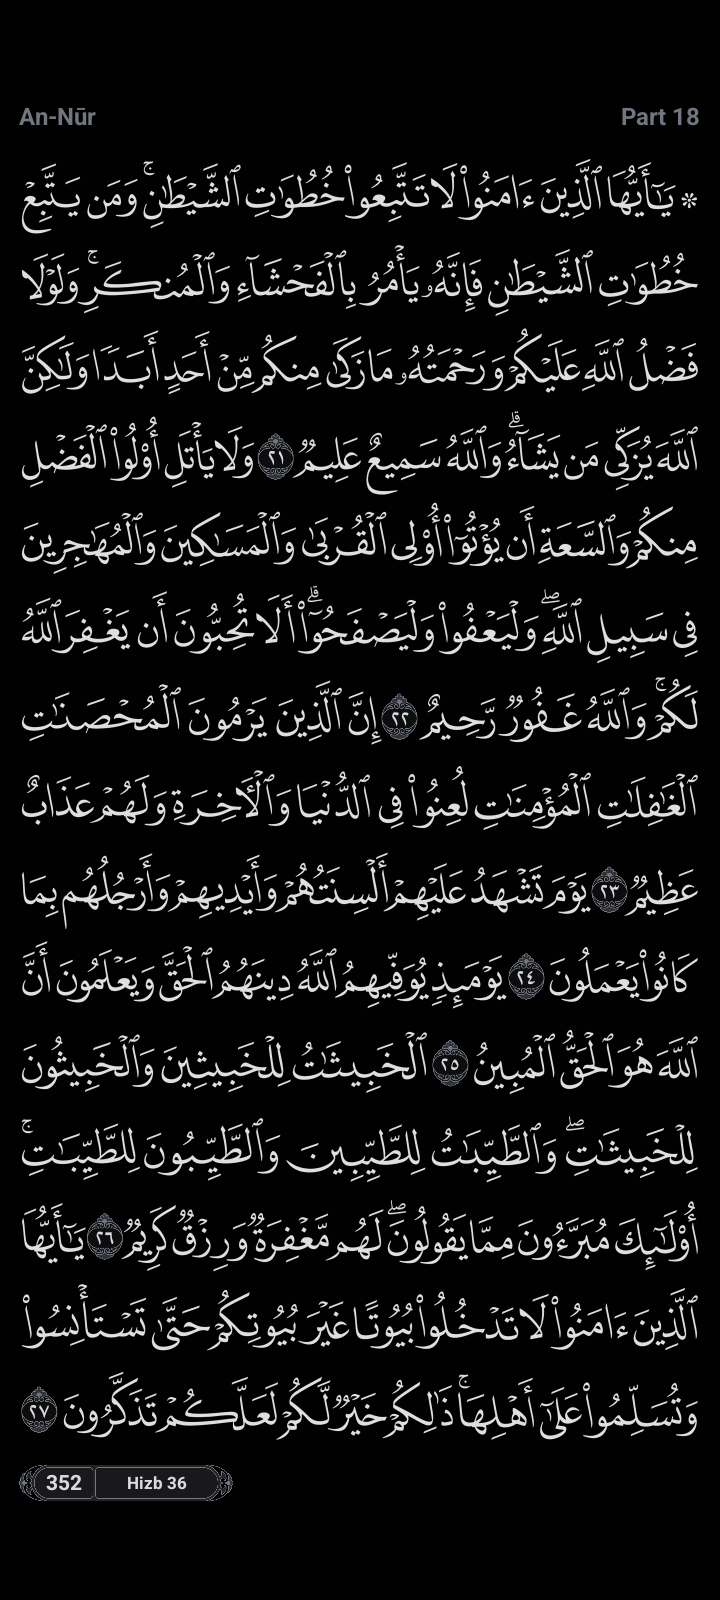 An-Nūr
Part 18
۞ يَـٰٓأَيُّهَا ٱلَّذِينَ ءَامَنُوا۟ لَا تَتَّبِعُوا۟ خُطُوَٰتِ ٱلشَّيْطَـٰنِ ۚ وَمَن يَتَّبِعْ
خُطُوَٰتِ ٱلشَّيْطَـٰنِ فَإِنَّهُۥ يَأْمُرُ بِٱلْفَحْشَآءِ وَٱلْمُنكَرِ ۚ وَلَوْلَا
فَضْلُ ٱللَّهِ عَلَيْكُمْ وَرَحْمَتُهُۥ مَا زَكَىٰ مِنكُم مِّنْ أَحَدٍ أَبَدًا وَلَـٰكِنَّ
ٱللَّهَ يُزَكِّى مَن يَشَآءُ ۗ وَٱللَّهُ سَمِيعٌ عَلِيمٌ ٢١ وَلَا يَأْتَلِ أُو۟لُوا۟ ٱلْفَضْلِ
مِنكُمْ وَٱلسَّعَةِ أَن يُؤْتُوٓا۟ أُو۟لِى ٱلْقُرْبَىٰ وَٱلْمَسَـٰكِينَ وَٱلْمُهَـٰجِرِينَ
فِى سَبِيلِ ٱللَّهِ ۖ وَلْيَعْفُوا۟ وَلْيَصْفَحُوٓا۟ ۗ أَلَا تُحِبُّونَ أَن يَغْفِرَ ٱللَّهُ
لَكُمْ ۚ وَٱللَّهُ غَفُورٌ رَّحِيمٌ ٢٢ إِنَّ ٱلَّذِينَ يَرْمُونَ ٱلْمُحْصَنَـٰتِ
ٱلْغَـٰفِلَـٰتِ ٱلْمُؤْمِنَـٰتِ لُعِنُوا۟ فِى ٱلدُّنْيَا وَٱلْـَٔاخِرَةِ وَلَهُمْ عَذَابٌ
عَظِيمٌ ٢٣ يَوْمَ تَشْهَدُ عَلَيْهِمْ أَلْسِنَتُهُمْ وَأَيْدِيهِمْ وَأَرْجُلُهُم بِمَا
كَانُوا۟ يَعْمَلُونَ ٢٤ يَوْمَئِذٍ يُوَفِّيهِمُ ٱللَّهُ دِينَهُمُ ٱلْحَقَّ وَيَعْلَمُونَ أَنَّ
ٱللَّهَ هُوَ ٱلْحَقُّ ٱلْمُبِينُ ٢٥ ٱلْخَبِيثَـٰتُ لِلْخَبِيثِينَ وَٱلْخَبِيثُونَ
لِلْخَبِيثَـٰتِ ۖ وَٱلطَّيِّبَـٰتُ لِلطَّيِّبِينَ وَٱلطَّيِّبُونَ لِلطَّيِّبَـٰتِ ۚ
أُو۟لَـٰٓئِكَ مُبَرَّءُونَ مِمَّا يَقُولُونَ ۖ لَهُم مَّغْفِرَةٌ وَرِزْقٌ كَرِيمٌ ٢٦ يَـٰٓأَيُّهَا
ٱلَّذِينَ ءَامَنُوا۟ لَا تَدْخُلُوا۟ بُيُوتًا غَيْرَ بُيُوتِكُمْ حَتَّىٰ تَسْتَأْنِسُوا۟
وَتُسَلِّمُوا۟ عَلَىٰٓ أَهْلِهَا ۚ ذَٰلِكُمْ خَيْرٌ لَّكُمْ لَعَلَّكُمْ تَذَكَّرُونَ ٢٧
352 Hizb 36